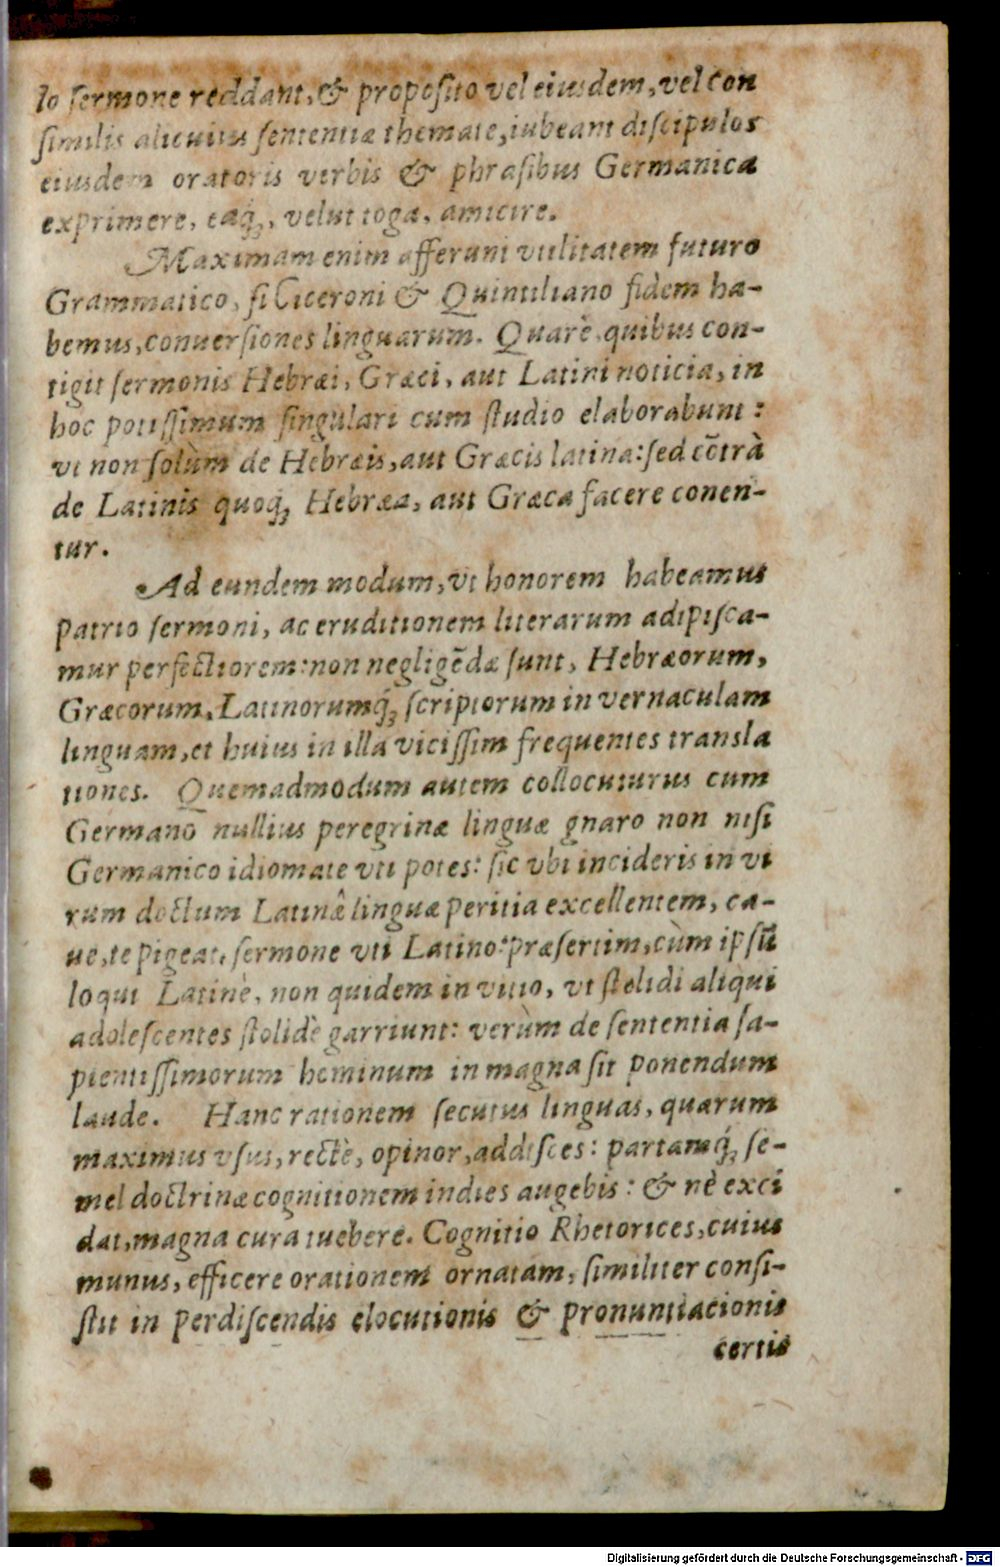 lo sermone reddant, & proposito vel eiusdem, vel con
similis alicuius sententiæ themate, iubeant discipulos
eiusdem oratoris verbis & phrasibus Germanica
exprimere, eaq́ꝫ, velut toga, amicire.
Maximam enim afferunt vtilitatem futuro
Grammatico, si Ciceroni & Quintiliano fidem ha-
bemus, conuersiones linguarum. Quarè, quibus con-
tigit sermonis Hebræi, Græci, aut Latini noticia, in
hoc potissimum singulari cum studio elaborabunt:
vt non solùm de Hebræis, aut Græcis latina: sed cōtrà
de Latinis quoq́ꝫ Hebræa, aut Græca facere conen-
tur.
Ad eundem modum, vt honorem habeamus
patrio sermoni, ac eruditionem literarum adipisca-
mur perfectiorem: non negligēdæ sunt, Hebræorum,
Græcorum, Latinorumq́ꝫ scriptorum in vernaculam
linguam, et huius in illa vicissim frequentes transla
tiones. Quemadmodum autem collocuturus cum
Germano nullius peregrinæ linguæ gnaro non nisi
Germanico idiomate vti potes: sic vbi incideris in vi
rum doctum Latinâ linguæ peritia excellentem, ca-
ue, te pigeat, sermone vti Latino: præsertim, cùm ipsū
loqui Latinè, non quidem in vitio, vt stolidi aliqui
adolescentes stolidè garriunt: verùm de sententia sa-
pientissimorum hominum in magna sit ponendum
laude. Hanc rationem secutus linguas, quarum
maximus vsus, rectè, opinor, addisces: partamq́ꝫ se-
mel doctrinæ cognitionem indies augebis: & nè exci
dat, magna cura tuebere. Cognitio Rhetorices, cuius
munus, efficere orationem ornatam, similiter consi-
stit in perdiscendis elocutionis & pronuntiacionis
certis
Digitalisierung gefördert durch die Deutsche Forschungsgemeinschaft - DFG